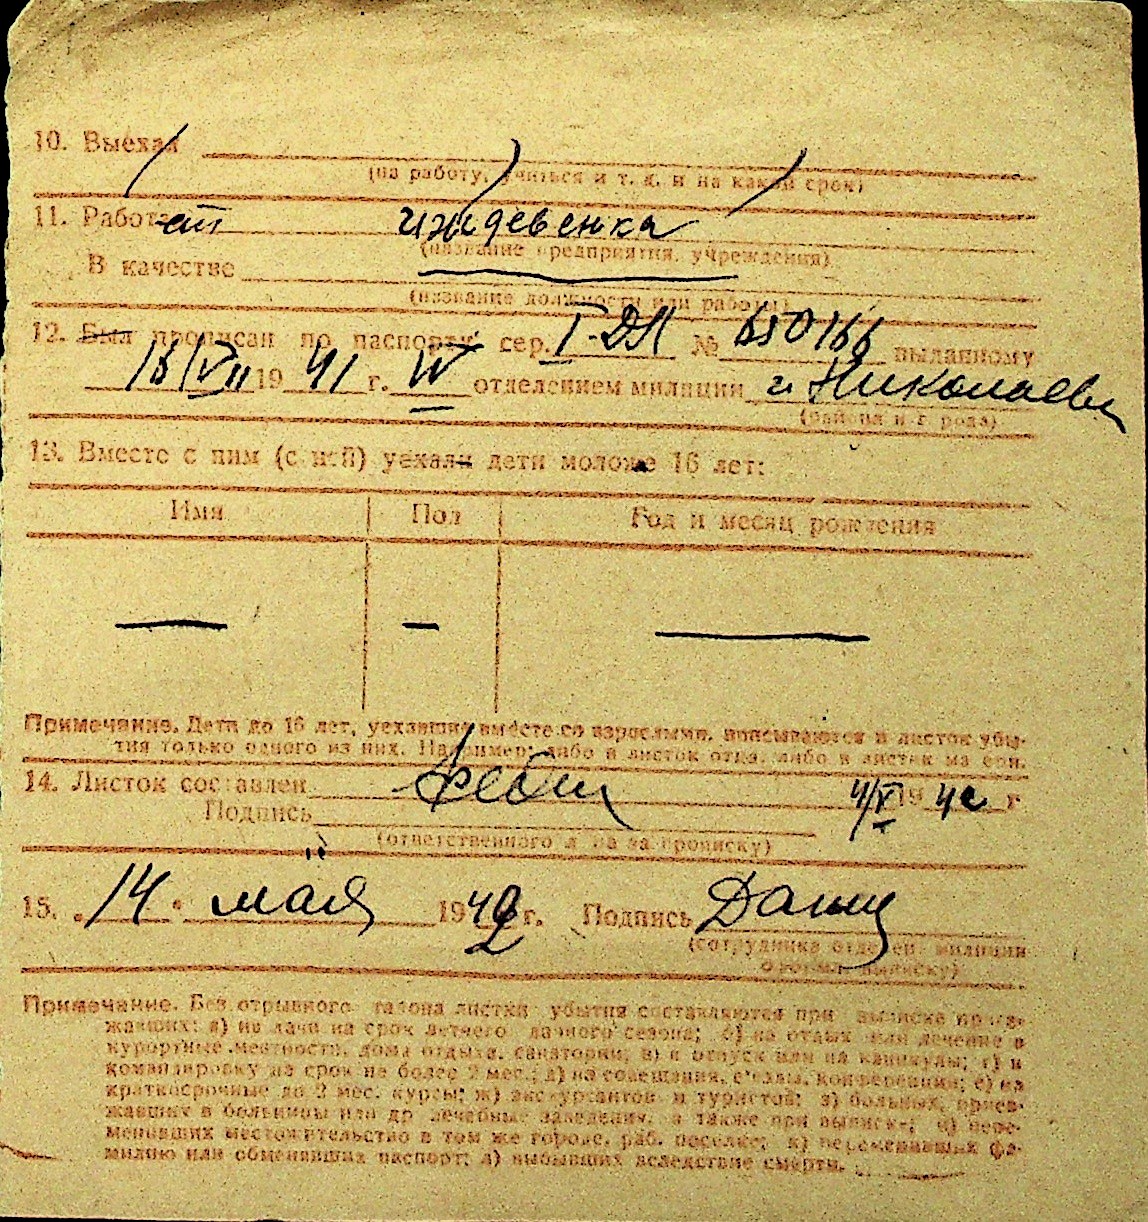 10. Выехал
(на работу, учиться и т. д. и на какой срок)
11. Работает иждевенка
(название предприятия, учреждения)
В качестве
(название должности или работы)
12. Был прописан по паспорту сер. I-ДЛ № 650166 выданному
18/VII 1941 г. IV отделением милиции г. Николаев
(района и города)
13. Вместе с ним (с ней) уехали дети моложе 16 лет:
Имя Пол Год и месяц рождения
— — —
Примечание. Дети до 16 лет, уехавшие вместе со взрослыми, вписываются в листок убы-
тия только одного из них. Например: либо в листок отца, либо в листок матери.
14. Листок составлен 4/V 1942 г
Подпись
(ответственного лица за прописку)
15. „14" мая 1942 г. Подпись
(сотрудника отделен. милиции
оформл. выписку)
Примечание. Без отрывного талона листки убытия составляются при выписке приез-
жавших: а) на дачи на срок летнего дачного сезона; б) на отдых или лечение в
курортные местности, дома отдыха, санатории; в) в отпуск или на каникулы; г) в
командировку на срок не более 2 мес.; д) на совещания, съезды, конференции; е) на
краткосрочные до 2 мес. курсы; ж) экскурсантов и туристов; з) больных, приез-
жавших в больницы или др лечебные заведения, а также при выписке; и) пере-
менивших местожительство в том же городе, раб. поселке; к) переменивших фа-
милию или обменявших паспорт; л) выбывших вследствие смерти.